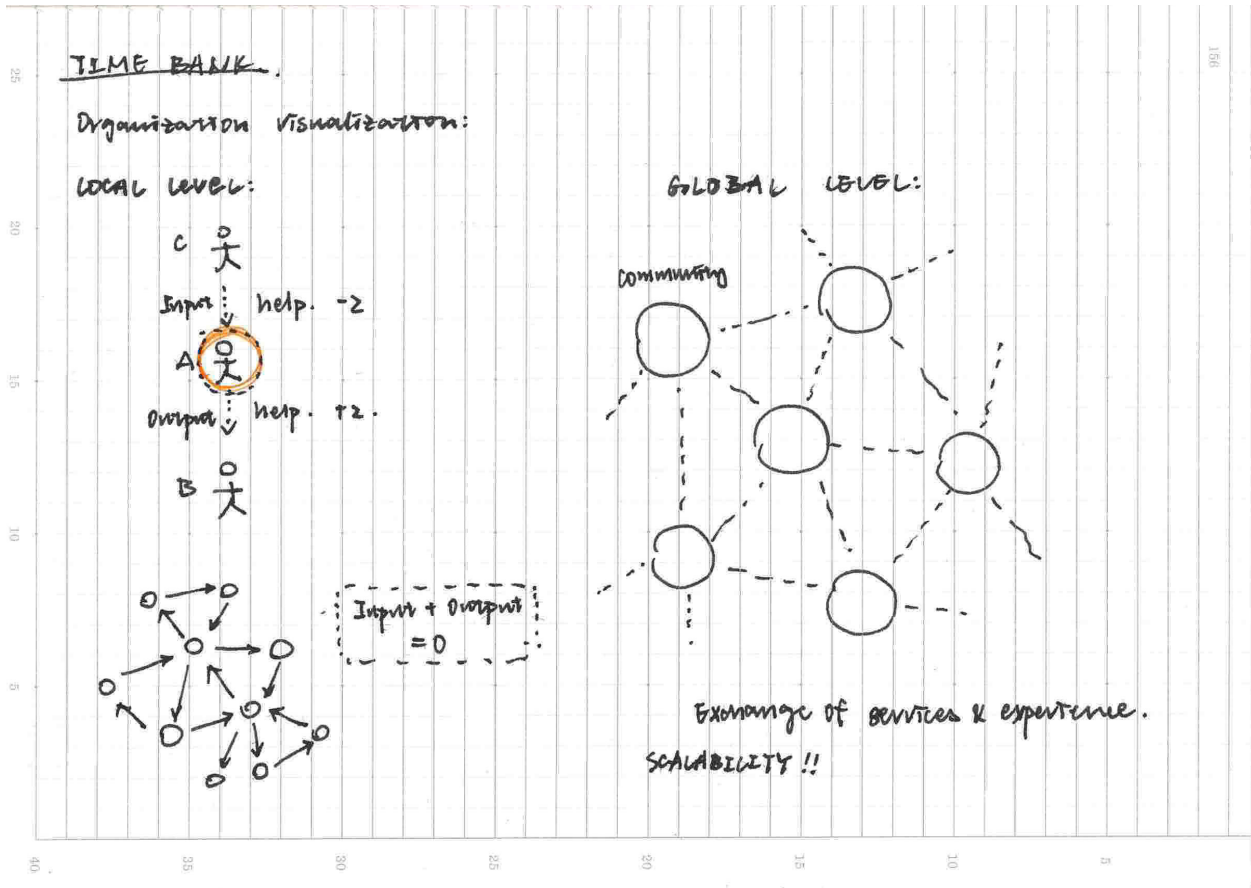 TIME BANK.
Organization visualization:
LOCAL LEVEL:
C
Input help. -2
A
Output help. +2.
B
Input + Output
= 0
GLOBAL LEVEL:
community
Exchange of services & experience.
SCALABILITY!!
156
25
20
15
10
5
40
35
30
25
20
15
10
5